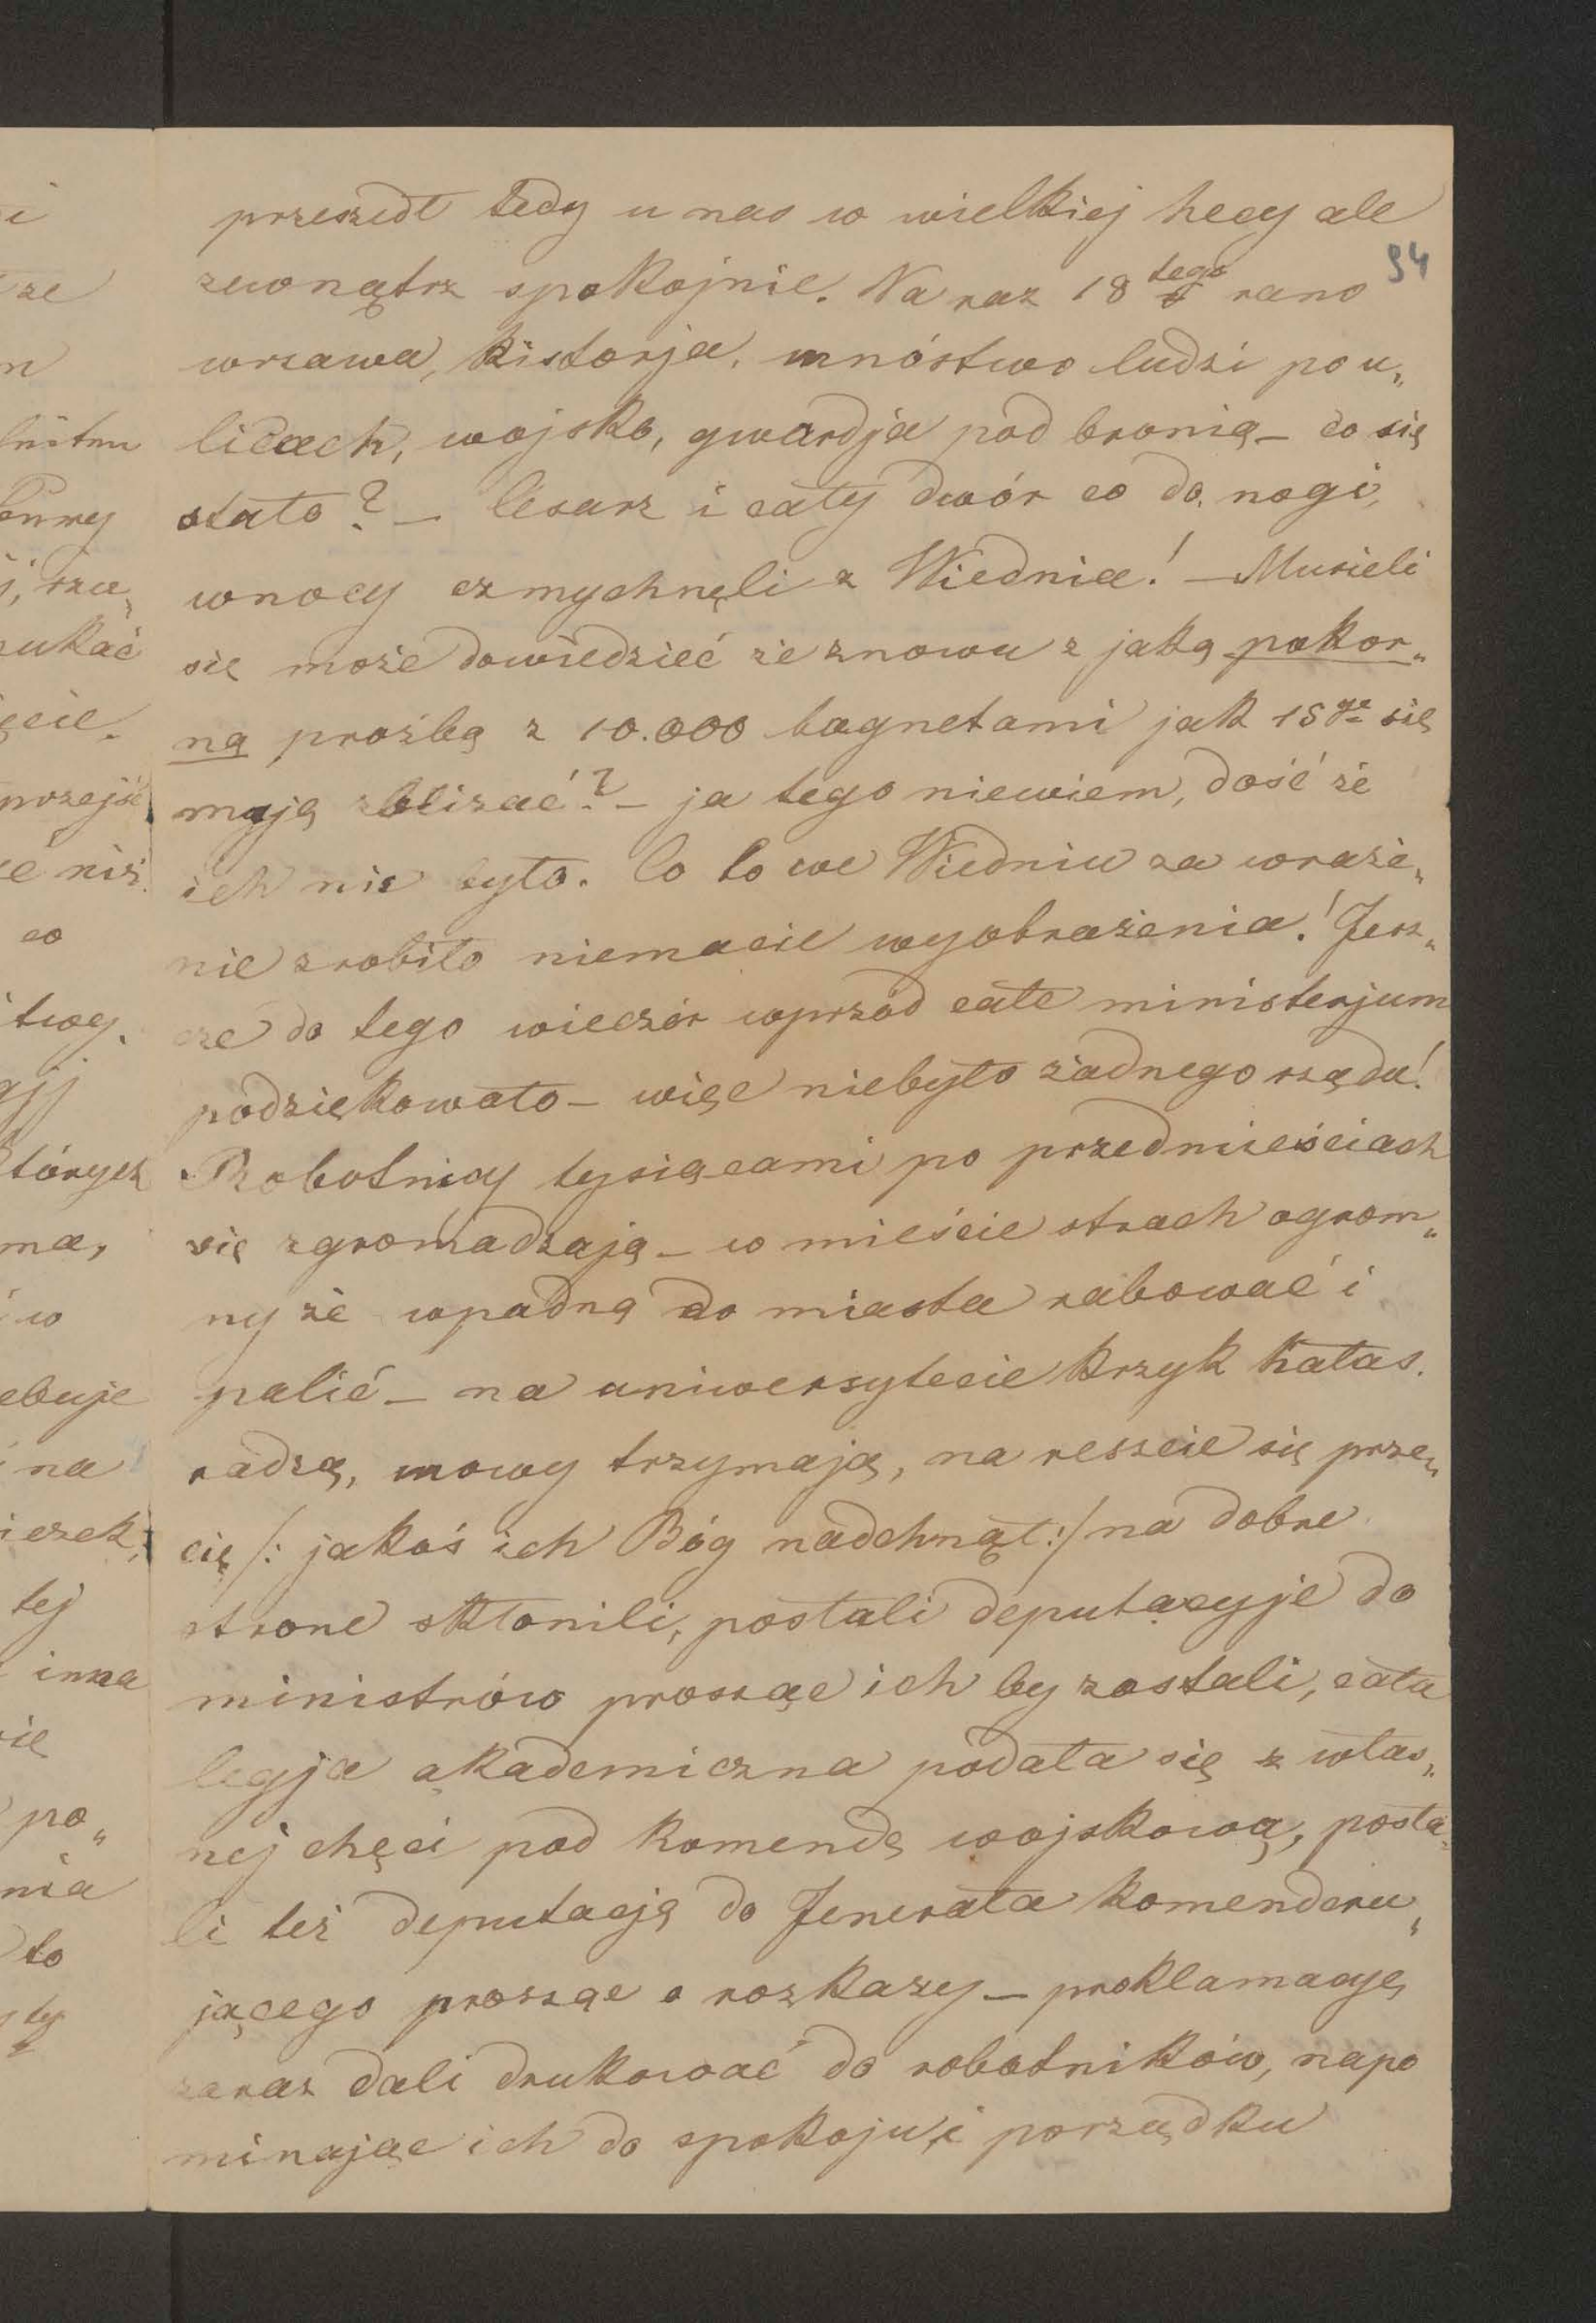 przeszedł tedy u nas w wielkiej hecy ale
94
zewnątrz spokojnie. Na raz 18 tego rano
wrzawa, historja, mnóstwo ludzi po u„
licach, wojsko, gwardja pod bronią – co się
stało? – Cesarz i cały dwór co do nogi,
wnocy czmychnęli z Wiednia! – Musieli
się może dowiedzieć że znowu z jaką pokor„
ną prośbą z 10.000 bagnetami jak 15go się
mają zbliżać? – ja tego niewiem, dość że
ich nie było. Co to we Wiedniu za wraże„
nie zrobiło niemacie wyobrażenia! Jesz„
cze do tego wieczór wprzód całe ministerjum
podziękowało – więc niebyło żadnego rządu!
Robotnicy tysiącami po przedmieściach
się zgromadzają – w mieście strach ogrom„
ny że wpadną do miasta rabować i
palić – na uniwersytecie krzyk hałas.
radzą, mowy trzymają, na reszcie się prze„
cię /: jakoś ich Bóg nadchnął :/ na dobre
strone skłonili, posłali deputacyje do
ministrów prosząc ich by zostali, cała
legja akademiczna podała się z włas„
nej chęci pod komendę wojskową, posła„
li też deputacją do Jenerała komenderu„
jącego prosząc o rozkazy – proklamacyę
zaraz dali drukować do robotników, napo
minając ich do spokoju i porządku